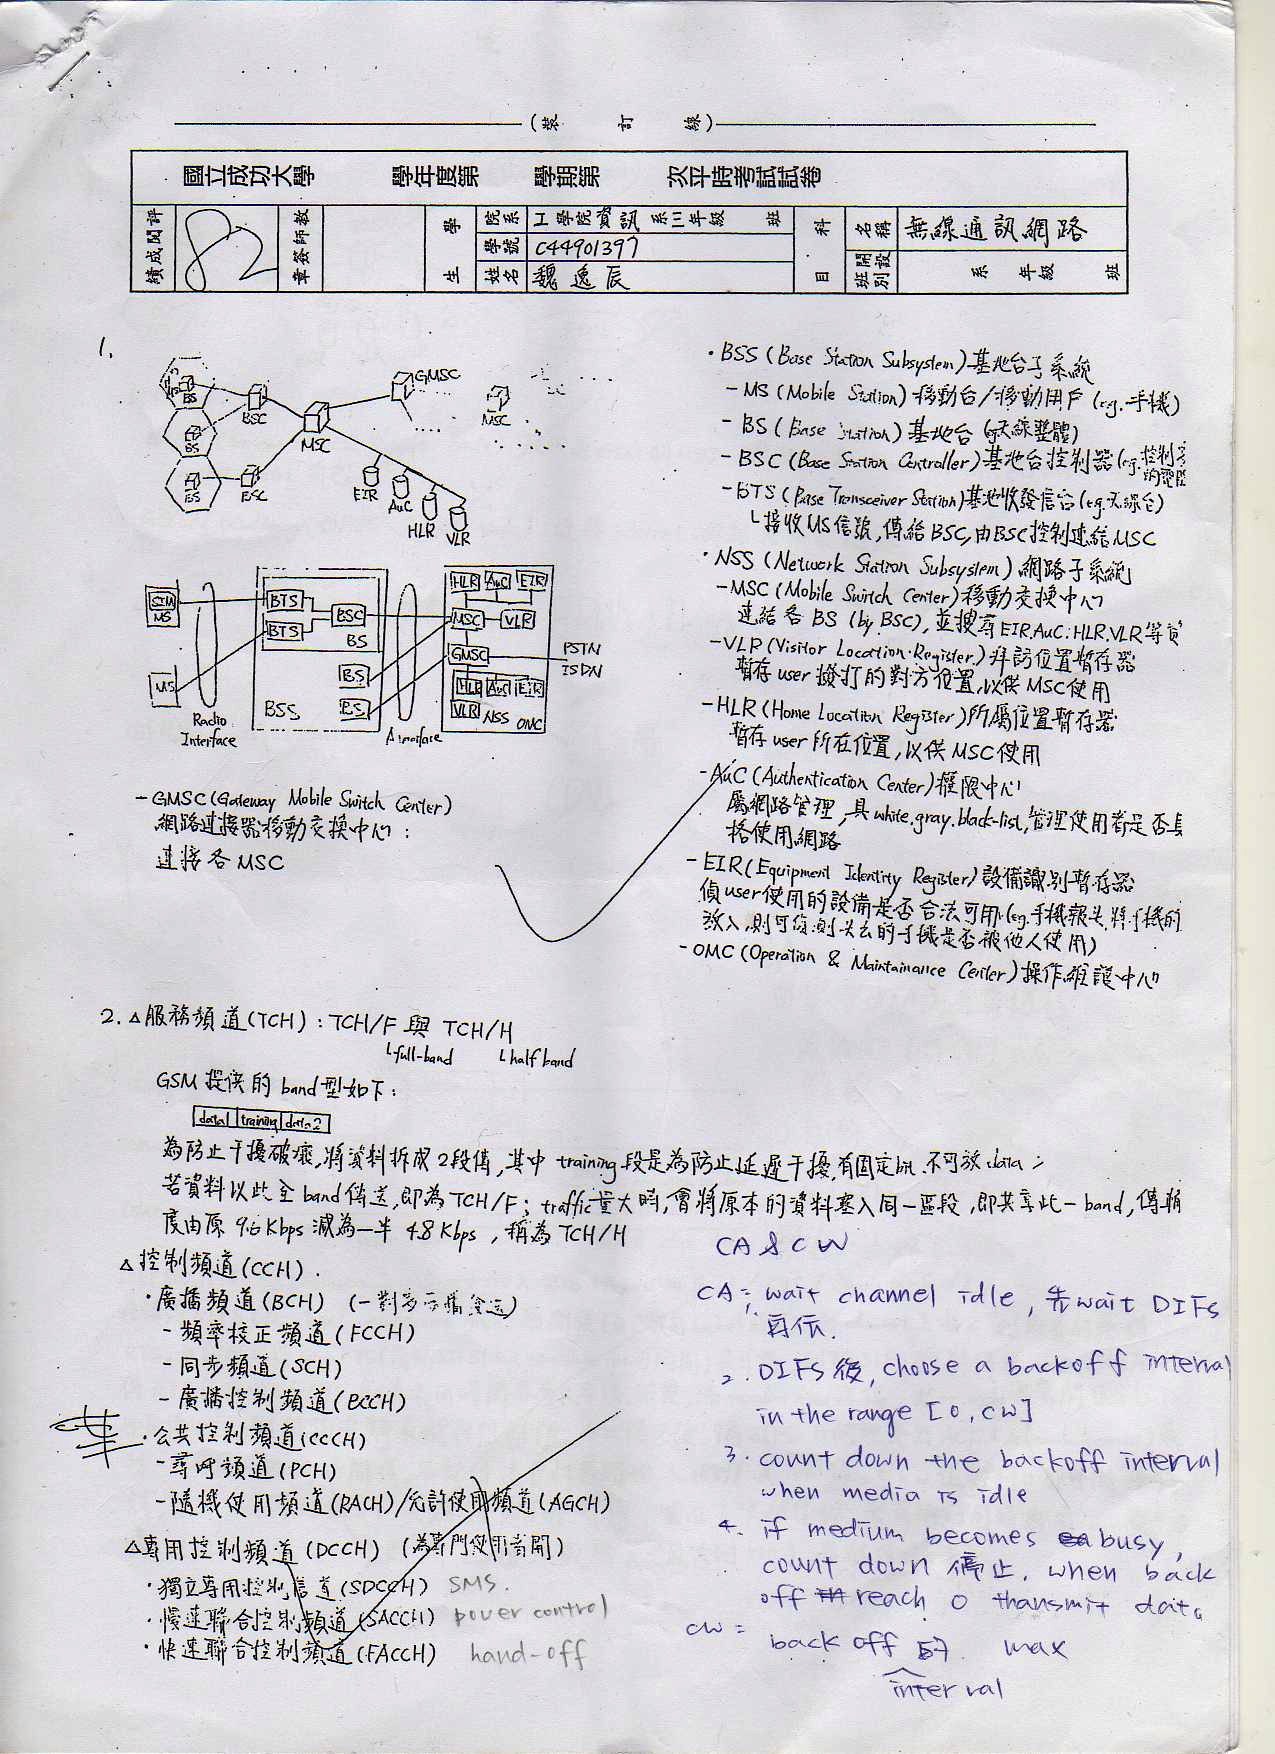 (裝 訂 線)
國立成功大學 學年度第 學期第 次平時考試試卷
評閱成績 82 教師簽章 學生 院系 工學院資訊系三年級 班 科目 名稱 無線通訊網路
學號 C44901397 開設班別 系 年級 班
姓名 魏逸辰
1.
GMSC
BS BSC MSC MSC
BS
BS BSC EIR AuC HLR VLR
SIM MS BTS BSC HLR AuC EIR
BTS BS MSC VLR
GMSC PSTN
MS BS HLR AuC EIR ISDN
BSS BS VLR NSS OMC
Radio Interface A interface
- GMSC (Gateway Mobile Switch Center)
網路連接器移動交換中心:
連接各MSC
・BSS (Base Station Subsystem) 基地台子系統
- MS (Mobile Station) 移動台/移動用戶 (e.g. 手機)
- BS (Base Station) 基地台 (eg天線整體)
- BSC (Base Station Controller) 基地台控制器 (e.g. 控制
- BTS (Base Transceiver Station) 基地收發信台 (e.g. 天線台)
└接收MS信號, 傳給BSC, 由BSC控制連結MSC
・NSS (Network Station Subsystem) 網路子系統
- MSC (Mobile Switch Center) 移動交換中心
連結各BS (by BSC), 並搜尋EIR, AuC, HLR, VLR等資
- VLR (Visitor Location Register) 拜訪位置暫存器
暫存user撥打的對方位置, 以供MSC使用
- HLR (Home Location Register) 所屬位置暫存器
暫存user所在位置, 以供MSC使用
- AuC (Authentication Center) 權限中心
屬網路管理, 具white, gray, black-list, 管理使用者是否具
格使用網路
- EIR (Equipment Identity Register) 設備識別暫存器
偵user使用的設備是否合法可用 (eg. 手機報失, 將手機的
放入, 則可偵測失去的手機是否被他人使用)
- OMC (Operation & Maintainance Center) 操作維護中心
2. △服務頻道(TCH) : TCH/F 與 TCH/H
└full-band └half band
GSM提供的band型如下:
data1 training data2
為防止干擾破壞, 將資料拆成2段傳, 其中training段是為防止延遲干擾, 有固定bit, 不可放data;
若資料以此全band傳送, 即為TCH/F; traffic量大時, 會將原本的資料塞入同一區段, 即共享此一band, 傳輸
度由原 9.6 Kbps 減為一半 4.8 Kbps, 稱為TCH/H
△控制頻道(CCH).
・廣播頻道(BCH) (一對多
- 頻率校正頻道(FCCH)
- 同步頻道(SCH)
- 廣播控制頻道(BCCH)
・公共控制頻道(CCCH)
- 尋呼頻道(PCH)
- 隨機使用頻道(RACH)/允許使用頻道(AGCH)
△專用控制頻道(DCCH) (為專門使用者開)
・獨立專用控制信道(SDCCH) SMS.
・慢速聯合控制頻道(SACCH) power control
・快速聯合控制頻道(FACCH) hand-off
CA & CW
CA: 1. wait channel idle, 先wait DIFs
再伝.
2. DIFs後, choose a backoff interval
in the range [0, CW]
3. count down the backoff interval
when media is idle
4. if medium becomes busy,
count down 停止, when back
off reach 0 thansmit data
CW = back off interval 的 max